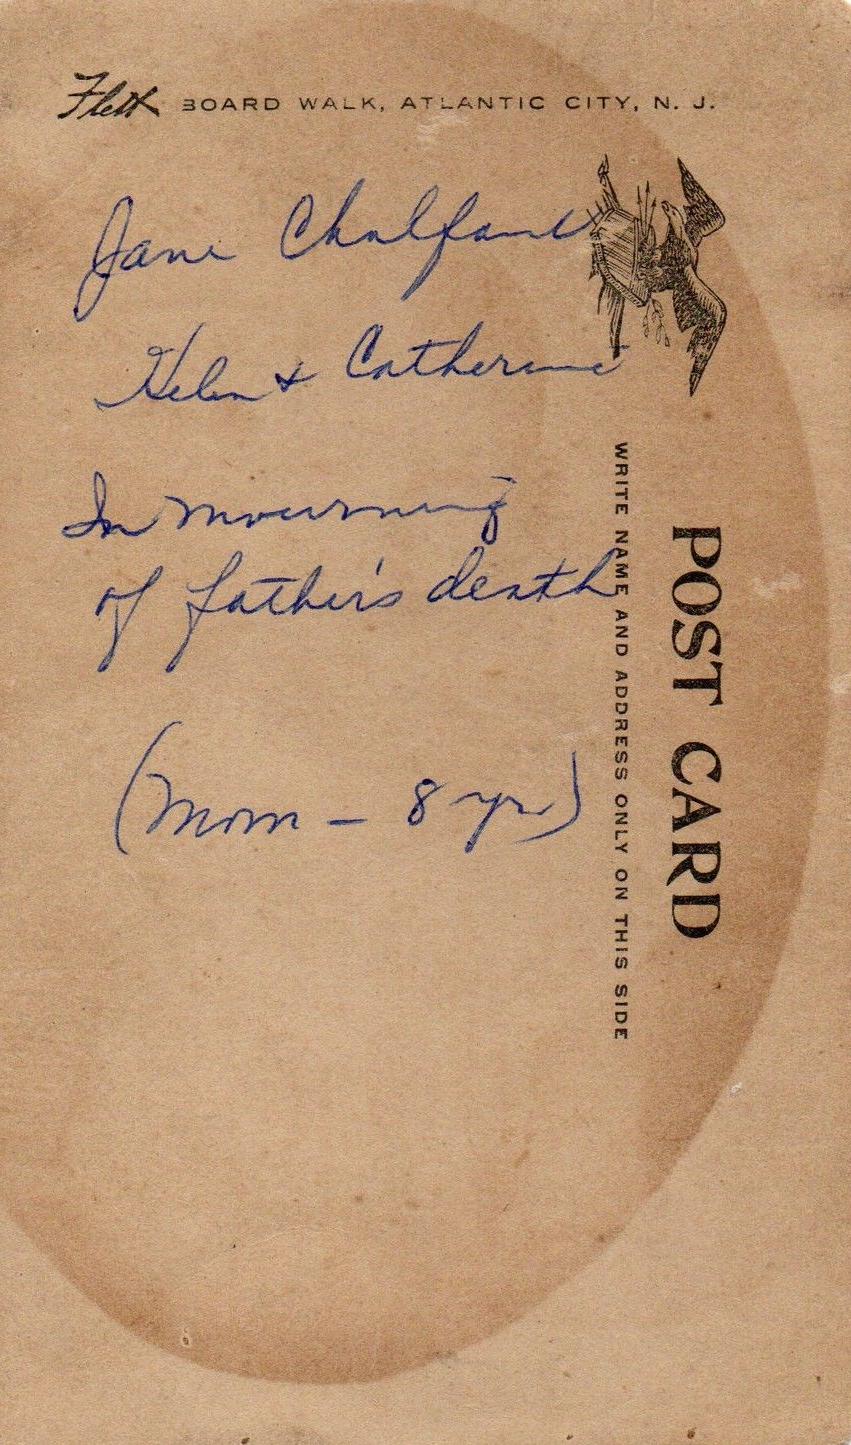 Flett BOARD WALK, ATLANTIC CITY, N. J.
Jane Chalfant
Helen & Catherine
In mourning
of father's death
(Mom – 8 yr)
POST CARD
WRITE NAME AND ADDRESS ONLY ON THIS SIDE